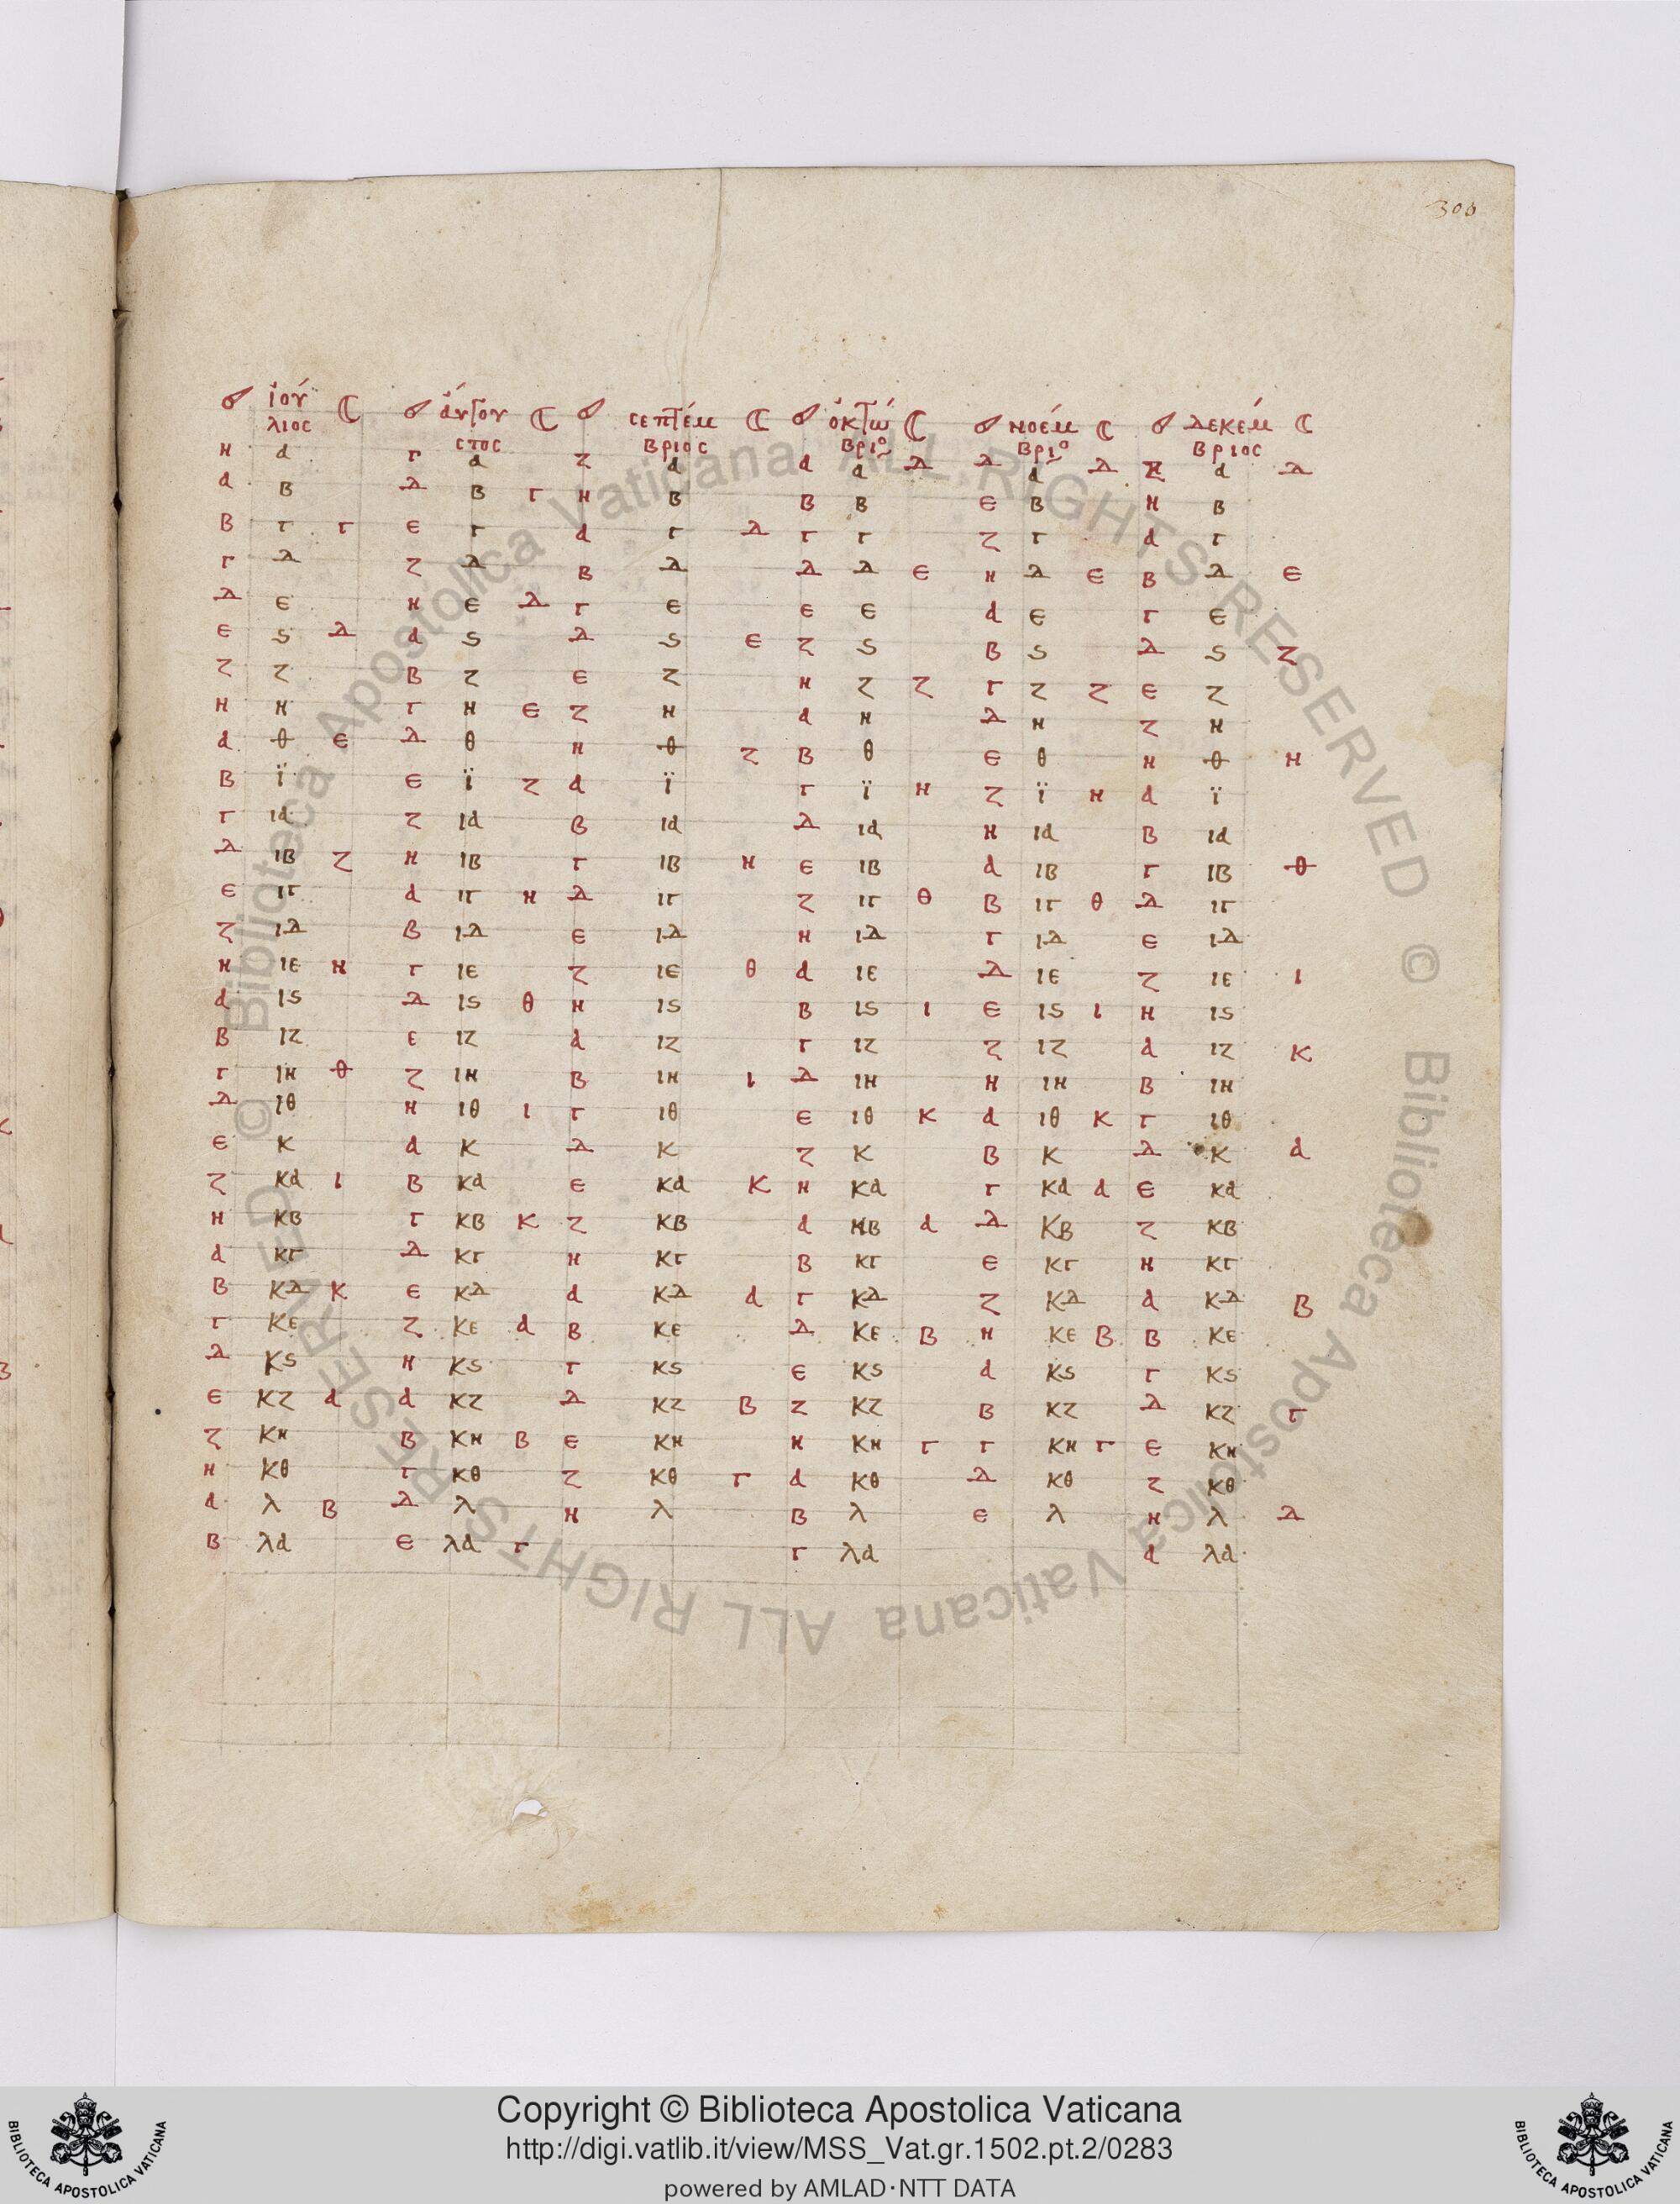 300
ἰού ἀυγου σεπτέμ ὀκτώ νοέμ δεκέμ
λιος στος βριος βριο βριο βριος
η α γ α ζ α α α δ δ α δ ζ α δ
α β δ β γ η β β β ε β η β
β γ γ ε γ α γ δ γ γ ζ γ α γ
γ δ ζ δ β δ δ δ ε η δ ε β δ ε
δ ε η ε δ γ ε ε ε α ε γ ε
ε ς δ α ς δ ς ε ζ ς β ς δ ς ζ
ζ ζ β ζ ε ζ η ζ ζ γ ζ ζ ε ζ
η η γ η ε ζ η α η δ η ζ η
α θ ε δ θ η θ ζ β θ ε θ η θ η
β ϊ ε ϊ ζ α ϊ γ ϊ η ζ ϊ η α ϊ
γ ια ζ ια β ια δ ια η ια β ια
δ ιβ ζ η ιβ γ ιβ η ε ιβ α ιβ γ ιβ θ
ε ιγ α ιγ η δ ιγ ζ ιγ θ β ιγ θ δ ιγ
ζ ιδ β ιδ ε ιδ η ιδ γ ιδ ε ιδ
η ιε η γ ιε ζ ιε θ α ιε δ ιε ζ ιε ι
α ις δ ις θ η ις β ις ι ε ις ι η ις
β ιζ ε ιζ α ιζ γ ιζ ζ ιζ α ιζ κ
γ ιη θ ζ ιη β ιη ι δ ιη η ιη β ιη
δ ιθ η ιθ ι γ ιθ ε ιθ κ α ιθ κ γ ιθ
ε κ α κ δ κ ζ κ β κ δ κ α
ζ κα ι β κα ε κα κ η κα γ κα α ε κα
η κβ γ κβ κ ζ κβ α κβ α δ κβ ζ κβ
α κγ δ κγ η κγ β κγ ε κγ η κγ
β κδ κ ε κδ α κδ α γ κδ ζ κδ α κδ β
γ κε ζ κε α β κε δ κε β η κε β β κε
δ κς η κς γ κς ε κς α κς γ κς
ε κζ α α κζ δ κζ β ζ κζ β κζ δ κζ γ
ζ κη β κη β ε κη η κη γ γ κη γ ε κη
η κθ γ κθ ζ κθ γ α κθ δ κθ ζ κθ
α λ β δ λ η λ β λ ε λ η λ δ
β λα ε λα γ γ λα α λα
Copyright © Biblioteca Apostolica Vaticana
http://digi.vatlib.it/view/MSS_Vat.gr.1502.pt.2/0283
powered by AMLAD·NTT DATA
BIBLIOTECA APOSTOLICA VATICANA
BIBLIOTECA APOSTOLICA VATICANA
© Biblioteca Apostolica Vaticana ALL RIGHTS RESERVED
© Biblioteca Apostolica Vaticana ALL RIGHTS RESERVED